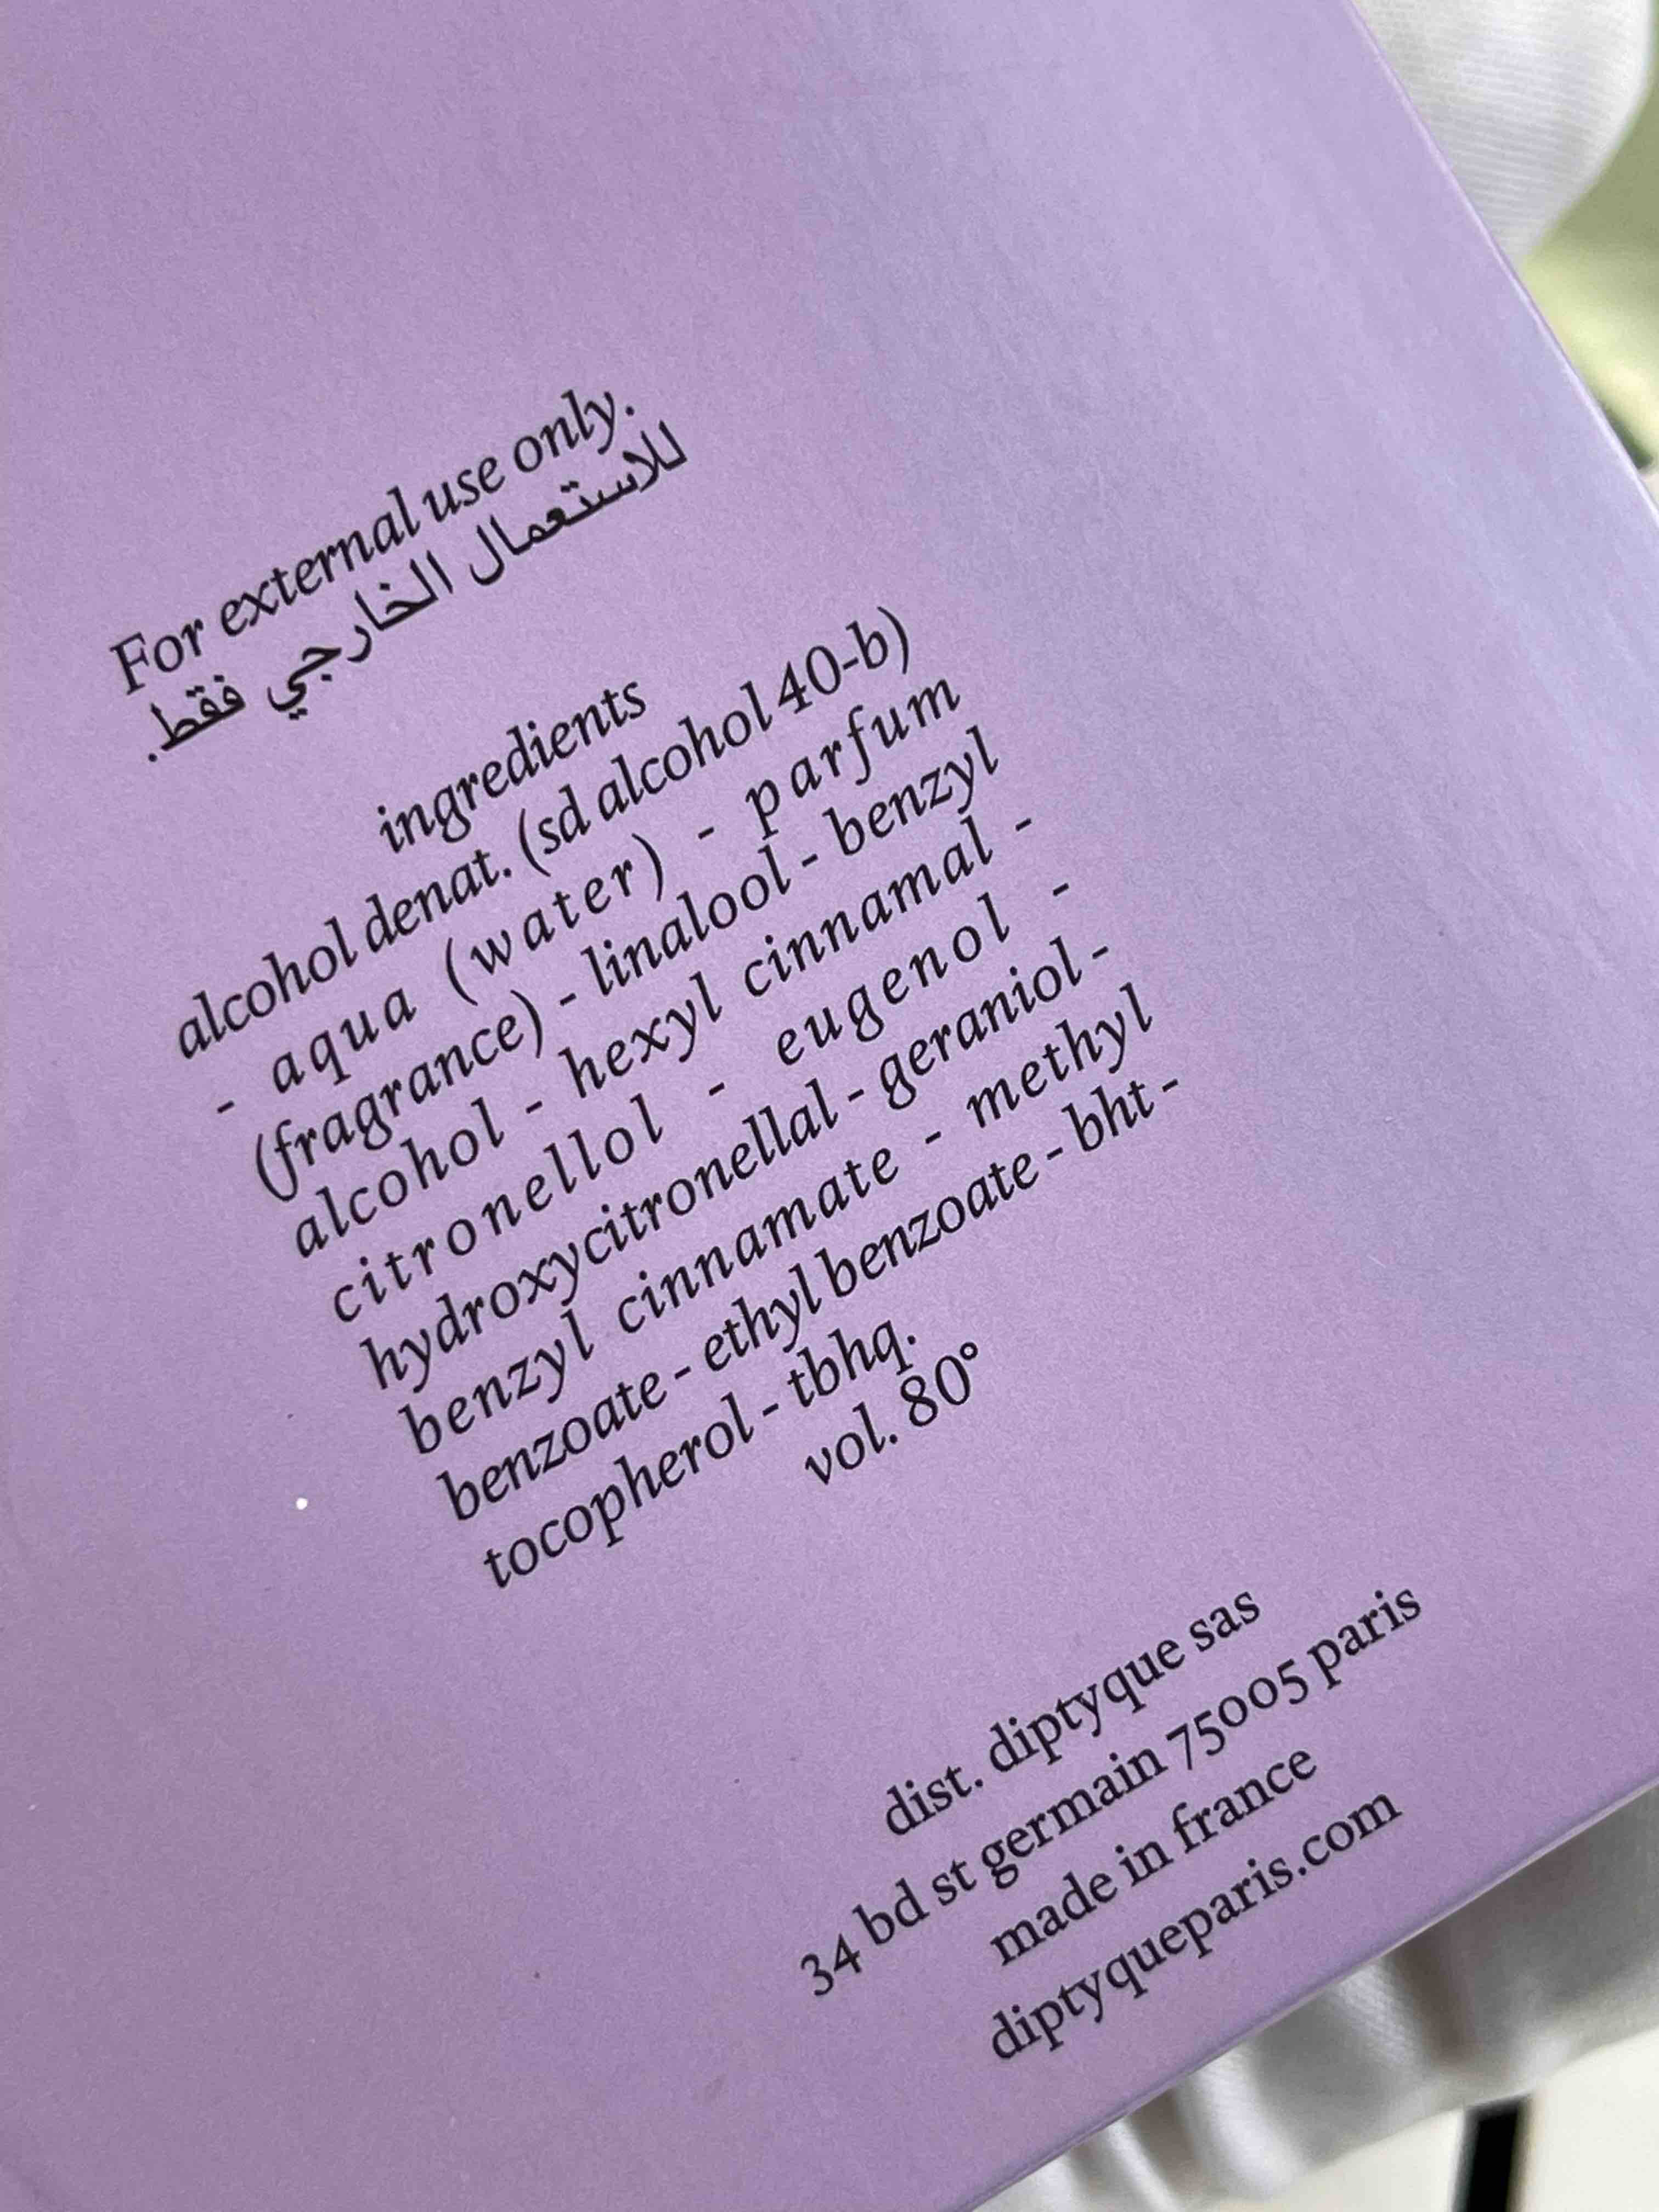 For external use only.
للاستعمال الخارجي فقط.
ingredients
alcohol denat. (sd alcohol 40-b)
- aqua (water) - parfum
(fragrance) - linalool - benzyl
alcohol - hexyl cinnamal -
citronellol - eugenol -
hydroxycitronellal - geraniol -
benzyl cinnamate - methyl
benzoate - ethyl benzoate - bht -
tocopherol - tbhq.
vol. 80°
dist. diptyque sas
34 bd st germain 75005 paris
made in france
diptyqueparis.com